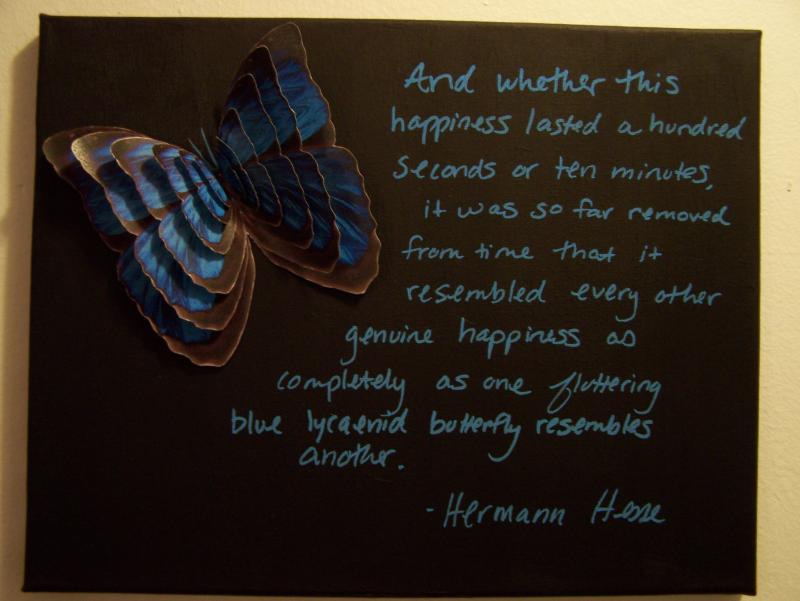 And whether this
happiness lasted a hundred
seconds or ten minutes,
it was so far removed
from time that it
resembled every other
genuine happiness as
completely as one fluttering
blue lycaenid butterfly resembles
another.
- Hermann Hesse